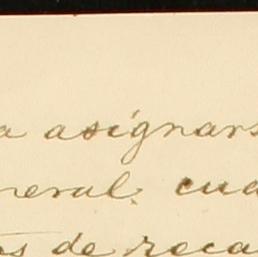 a asignars
neral. cua
os de reca